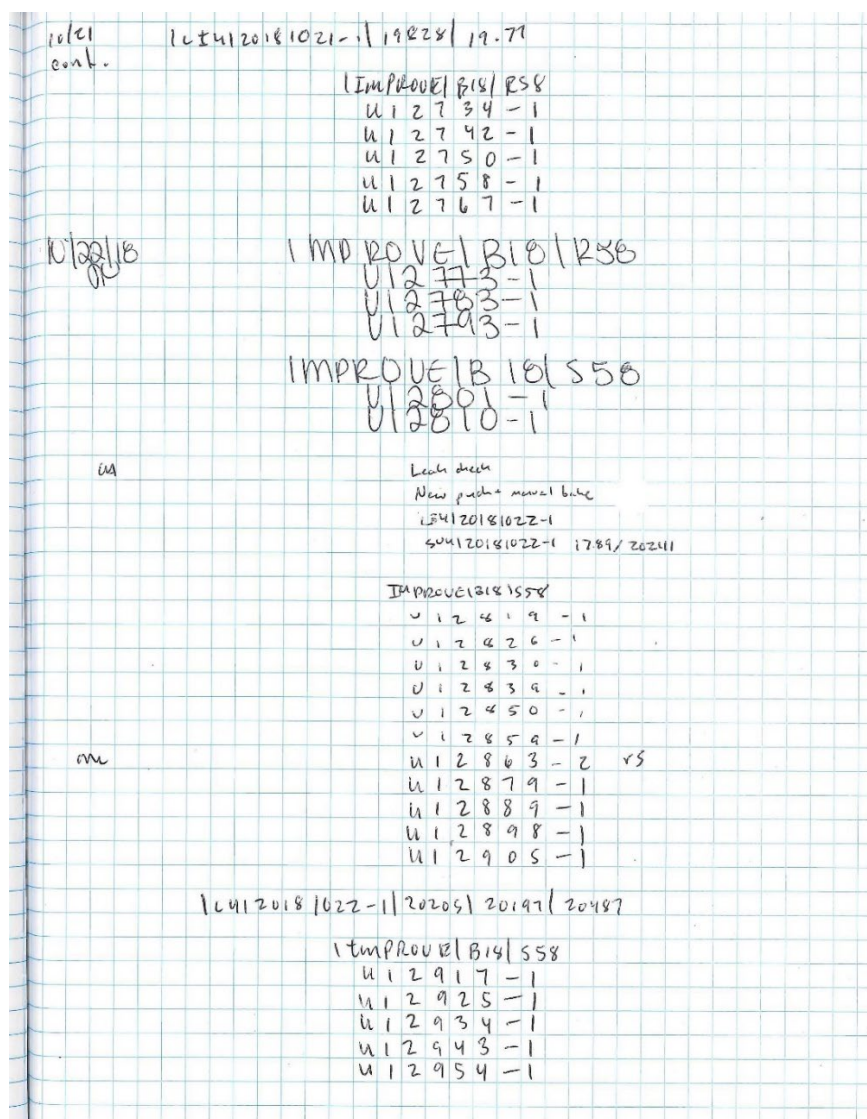 10/21 1CI4120181021-1|19828|19.77
cont.
|IMPROVE|B18|R58
U12734-1
U12742-1
U12750-1
U12758-1
U12767-1
10/22/18 IMPROVE|B18|R58
U12773-1
U12783-1
U12793-1
IMPROVE|B18|S58
U12801-1
U12810-1
Leak check
New punch + manual bake
20181022-1
20181022-1 17.89/20241
IMPROVE|B18|S58
U12819-1
U12826-1
U12830-1
U12839-1
U12850-1
U12859-1
U12863-2 rs
U12879-1
U12889-1
U12898-1
U12905-1
1C4120181022-1|20205|20197|20487
IMPROVE|B18|S58
U12917-1
U12925-1
U12934-1
U12943-1
U12954-1